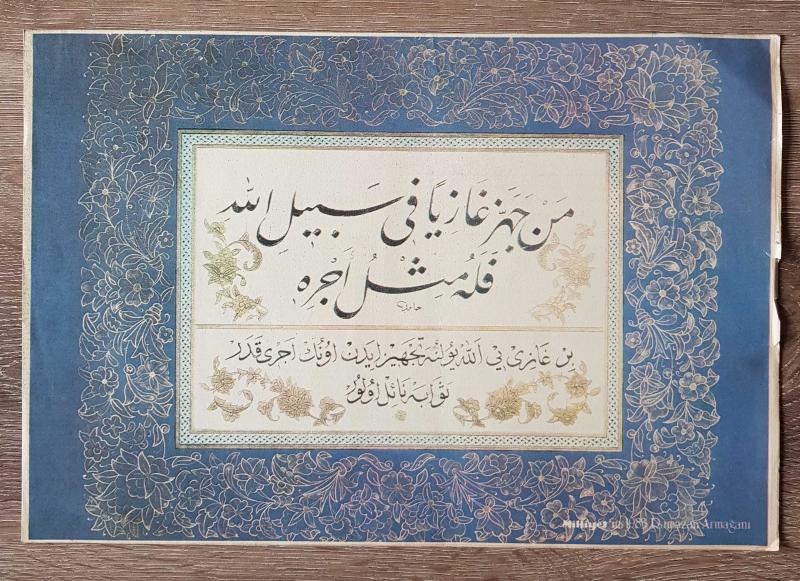 مَنْ جَهَّزَ غَازِيًا فِي سَبِيلِ اللّٰهِ
فَلَهُ مِثْلُ أَجْرِهِ
حامد
بِرْ غَازِى يِى اَللّٰه يُولُنَه تَجْهِيزْ اِيدَنْ اُونُكْ اَجْرِى قَدَرْ
ثَوَابَه نَائِلْ اُولُورْ
Milliyet'in Ramazan Armağanı